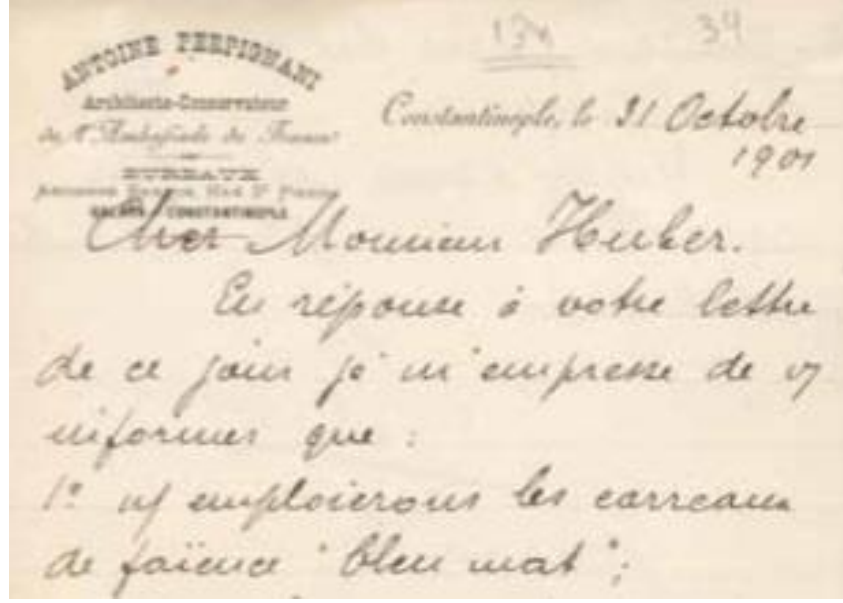 34
ANTOINE PERPIGNANI
Architecte-Conservateur
de l'Ambassade de France
BUREAUX
Rue St Pierre
GALATA CONSTANTINOPLE
Constantinople, le 31 Octobre
1901
Cher Monsieur Huber.
En réponse à votre lettre
de ce jour je m'empresse de vs
informer que :
1º ns emploierons les carreaux
de faïence "bleu mat";